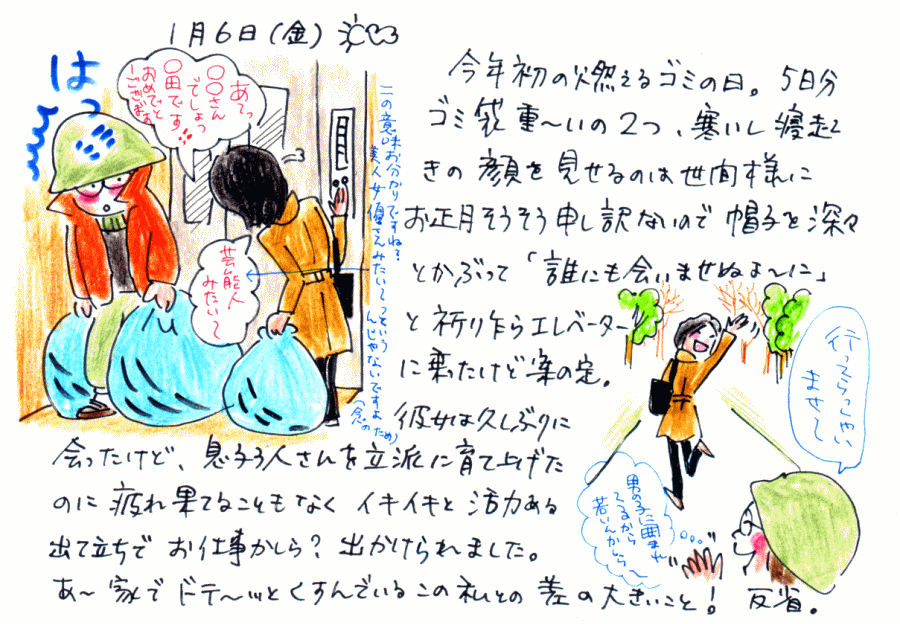 1月6日(金)
はっ
あ〜っ
〇〇さん
でしょっ
〇田です!!
おめでと
ーございます
この意味お分かりですね?
美人女優さんみたいってっていう
んじゃないですよ
(念のため)
芸能人
みたい〜
今年初の燃えるゴミの日。5日分
ゴミ袋重〜いの2つ、寒いし寝起
きの顔を見せるのは世間様に
お正月そうそう申し訳ないので帽子を深々
とかぶって「誰にも会いませぬよ〜に」
と祈り乍らエレベーター
に乗ったけど案の定。
彼女は久しぶりに
会ったけど、息子3人さんを立派に育て上げた
のに疲れ果てることもなくイキイキと活力ある
出て立ちでお仕事かしら?出かけられました。
あ〜家でドテ〜ッとくすんでいるこの私との差の大きいこと!反省。
行ってらっしゃい
ませ〜
男の子に囲まれ
てるから
若いんかしら〜